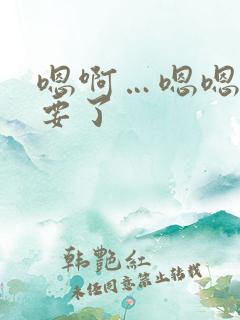 嗯啊…嗯嗯
要了
韩艷红
未经同意禁止转载